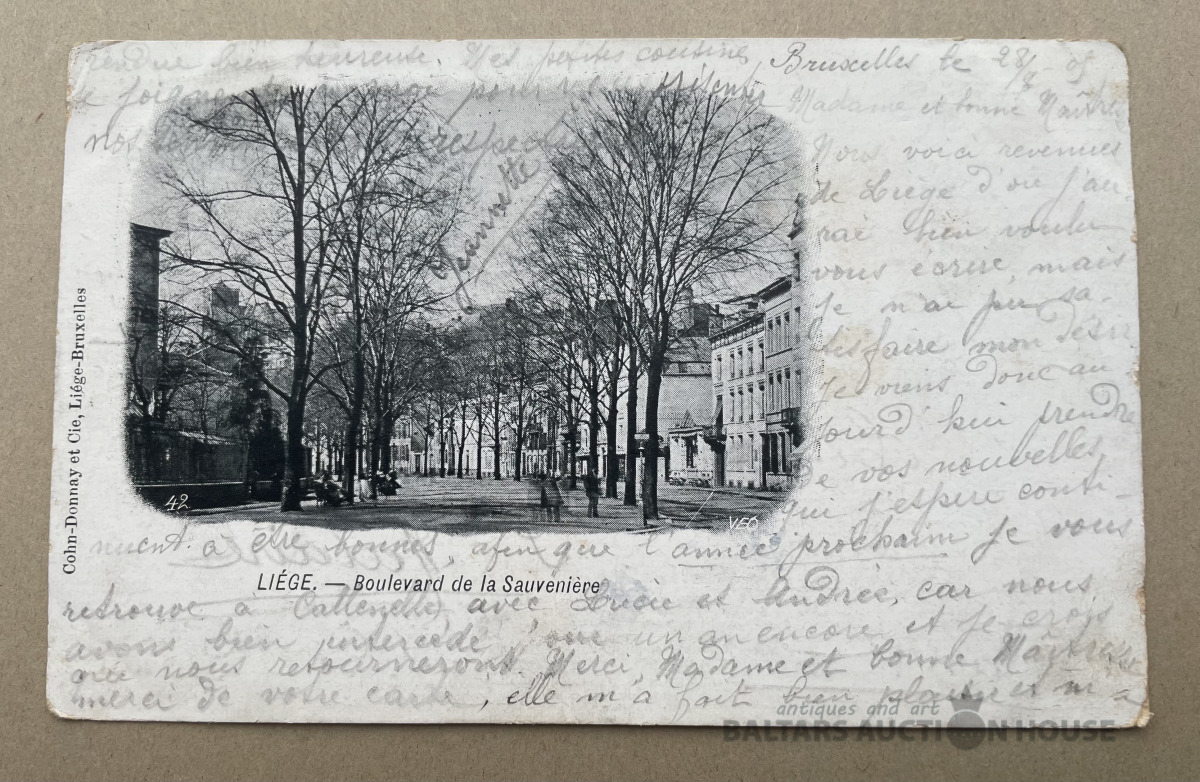 Bruxelles le 28/8 05
Madame et bonne Maîtresse
Nous voici revenues
de Liège d'où j'au
rai bien voulu
vous écrire, mais
je n'ai pu sa-
tisfaire mon désir
Je viens donc au
jourd'hui prendre
de vos nouvelles
qui j'espère conti-
nuent à être bonnes, afin que l'année prochaine je vous
retrouve à avec Lucie et Andrée, car nous
avons bien intercédé un an encore et je crois
que nous retourneront. Merci, Madame et bonne Maîtresse
merci de votre carte, elle m'a fait bien plaisir et m'a
rendue bien heureuse. Mes petites cousines
se joignent à moi pour vous présenter
nos respects
Jeannette
42
VED
LIÉGE. — Boulevard de la Sauvenière
Cohn-Donnay et Cie, Liége-Bruxelles
antiques and art
BALTARS AUCTION HOUSE